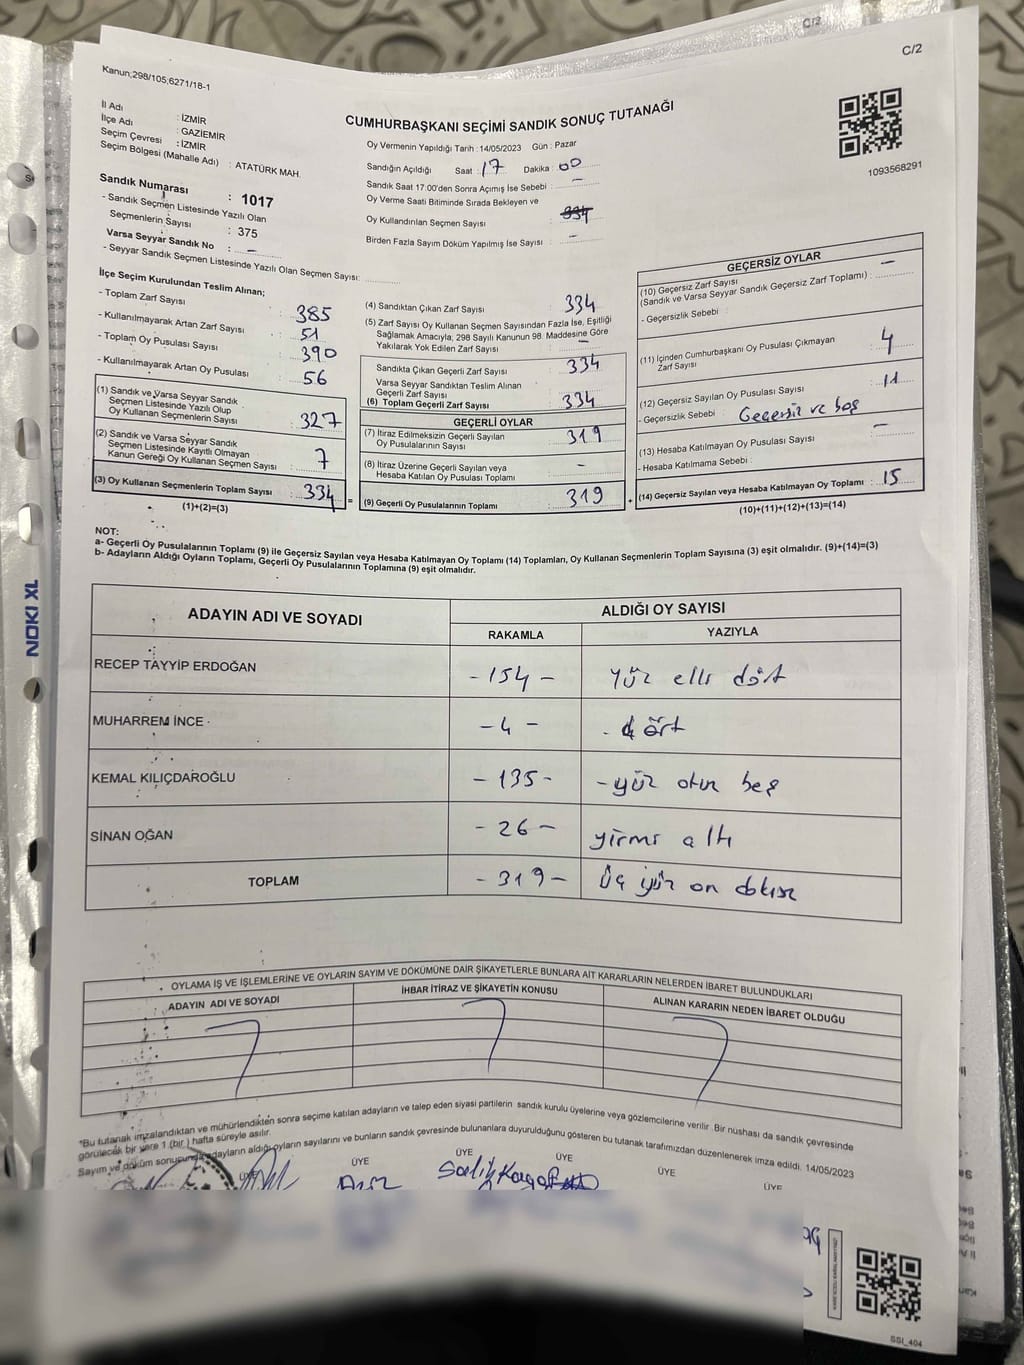 C/2
C/2
Kanun;298/105;6271/18-1
CUMHURBAŞKANI SEÇİMİ SANDIK SONUÇ TUTANAĞI
1093568291
İl Adı : İZMİR
İlçe Adı : GAZİEMİR
Seçim Çevresi : İZMİR
Seçim Bölgesi (Mahalle Adı) : ATATÜRK MAH.
Sandık Numarası : 1017
- Sandık Seçmen Listesinde Yazılı Olan
Seçmenlerin Sayısı : 375
Varsa Seyyar Sandık No : -
- Seyyar Sandık Seçmen Listesinde Yazılı Olan Seçmen Sayısı:
Oy Vermenin Yapıldığı Tarih :14/05/2023 Gün : Pazar
Sandığın Açıldığı Saat : 17 Dakika : 00
Sandık Saat 17.00'den Sonra Açımış İse Sebebi : -
Oy Verme Saati Bitiminde Sırada Bekleyen ve
Oy Kullandırılan Seçmen Sayısı : 334
Birden Fazla Sayım Döküm Yapılmış İse Sayısı : -
İlçe Seçim Kurulundan Teslim Alınan;
- Toplam Zarf Sayısı : 385
- Kullanılmayarak Artan Zarf Sayısı : 51
- Toplam Oy Pusulası Sayısı : 390
- Kullanılmayarak Artan Oy Pusulası : 56
(1) Sandık ve Varsa Seyyar Sandık
Seçmen Listesinde Yazılı Olup
Oy Kullanan Seçmenlerin Sayısı : 327
(2) Sandık ve Varsa Seyyar Sandık
Seçmen Listesinde Kayıtlı Olmayan
Kanun Gereği Oy Kullanan Seçmen Sayısı : 7
(3) Oy Kullanan Seçmenlerin Toplam Sayısı : 334
(1)+(2)=(3)
=
(4) Sandıktan Çıkan Zarf Sayısı : 334
(5) Zarf Sayısı Oy Kullanan Seçmen Sayısından Fazla İse, Eşitliği
Sağlamak Amacıyla, 298 Sayılı Kanunun 98. Maddesine Göre
Yakılarak Yok Edilen Zarf Sayısı : -
Sandıkta Çıkan Geçerli Zarf Sayısı : 334
Varsa Seyyar Sandıktan Teslim Alınan
Geçerli Zarf Sayısı :
(6) Toplam Geçerli Zarf Sayısı : 334
GEÇERLİ OYLAR
(7) İtiraz Edilmeksizin Geçerli Sayılan
Oy Pusulalarının Sayısı : 319
(8) İtiraz Üzerine Geçerli Sayılan veya
Hesaba Katılan Oy Pusulası Toplamı : -
(9) Geçerli Oy Pusulalarının Toplamı : 319
+
GEÇERSİZ OYLAR
(10) Geçersiz Zarf Sayısı
(Sandık ve Varsa Seyyar Sandık Geçersiz Zarf Toplamı) : -
- Geçersizlik Sebebi :
(11) İçinden Cumhurbaşkanı Oy Pusulası Çıkmayan
Zarf Sayısı : 4
(12) Geçersiz Sayılan Oy Pusulası Sayısı : 11
- Geçersizlik Sebebi : Geçersiz ve boş
(13) Hesaba Katılmayan Oy Pusulası Sayısı : -
- Hesaba Katılmama Sebebi :
(14) Geçersiz Sayılan veya Hesaba Katılmayan Oy Toplamı : 15
(10)+(11)+(12)+(13)=(14)
NOT:
a- Geçerli Oy Pusulalarının Toplamı (9) ile Geçersiz Sayılan veya Hesaba Katılmayan Oy Toplamı (14) Toplamları, Oy Kullanan Seçmenlerin Toplam Sayısına (3) eşit olmalıdır. (9)+(14)=(3)
b- Adayların Aldığı Oyların Toplamı, Geçerli Oy Pusulalarının Toplamına (9) eşit olmalıdır.
ADAYIN ADI VE SOYADI ALDIĞI OY SAYISI
RAKAMLA YAZIYLA
RECEP TAYYİP ERDOĞAN - 154 - yüz elli dört
MUHARREM İNCE - 4 - - dört
KEMAL KILIÇDAROĞLU - 135 - - yüz otuz beş
SİNAN OĞAN - 26 - yirmi altı
TOPLAM - 319 - üç yüz on dokuz
OYLAMA İŞ VE İŞLEMLERİNE VE OYLARIN SAYIM VE DÖKÜMÜNE DAİR ŞİKAYETLERLE BUNLARA AİT KARARLARIN NELERDEN İBARET BULUNDUKLARI
ADAYIN ADI VE SOYADI İHBAR İTİRAZ VE ŞİKAYETİN KONUSU ALINAN KARARIN NEDEN İBARET OLDUĞU
*Bu tutanak imzalandıktan ve mühürlendikten sonra seçime katılan adayların ve talep eden siyasi partilerin sandık kurulu üyelerine veya gözlemcilerine verilir. Bir nüshası da sandık çevresinde
görülecek bir yere 1 (bir) hafta süreyle asılır.
Sayım ve döküm sonucunda adayların aldığı oyların sayılarını ve bunların sandık çevresinde bulunanlara duyurulduğunu gösteren bu tutanak tarafımızdan düzenlenerek imza edildi. 14/05/2023
ÜYE ÜYE ÜYE ÜYE ÜYE
NOKI XL
SSI_404